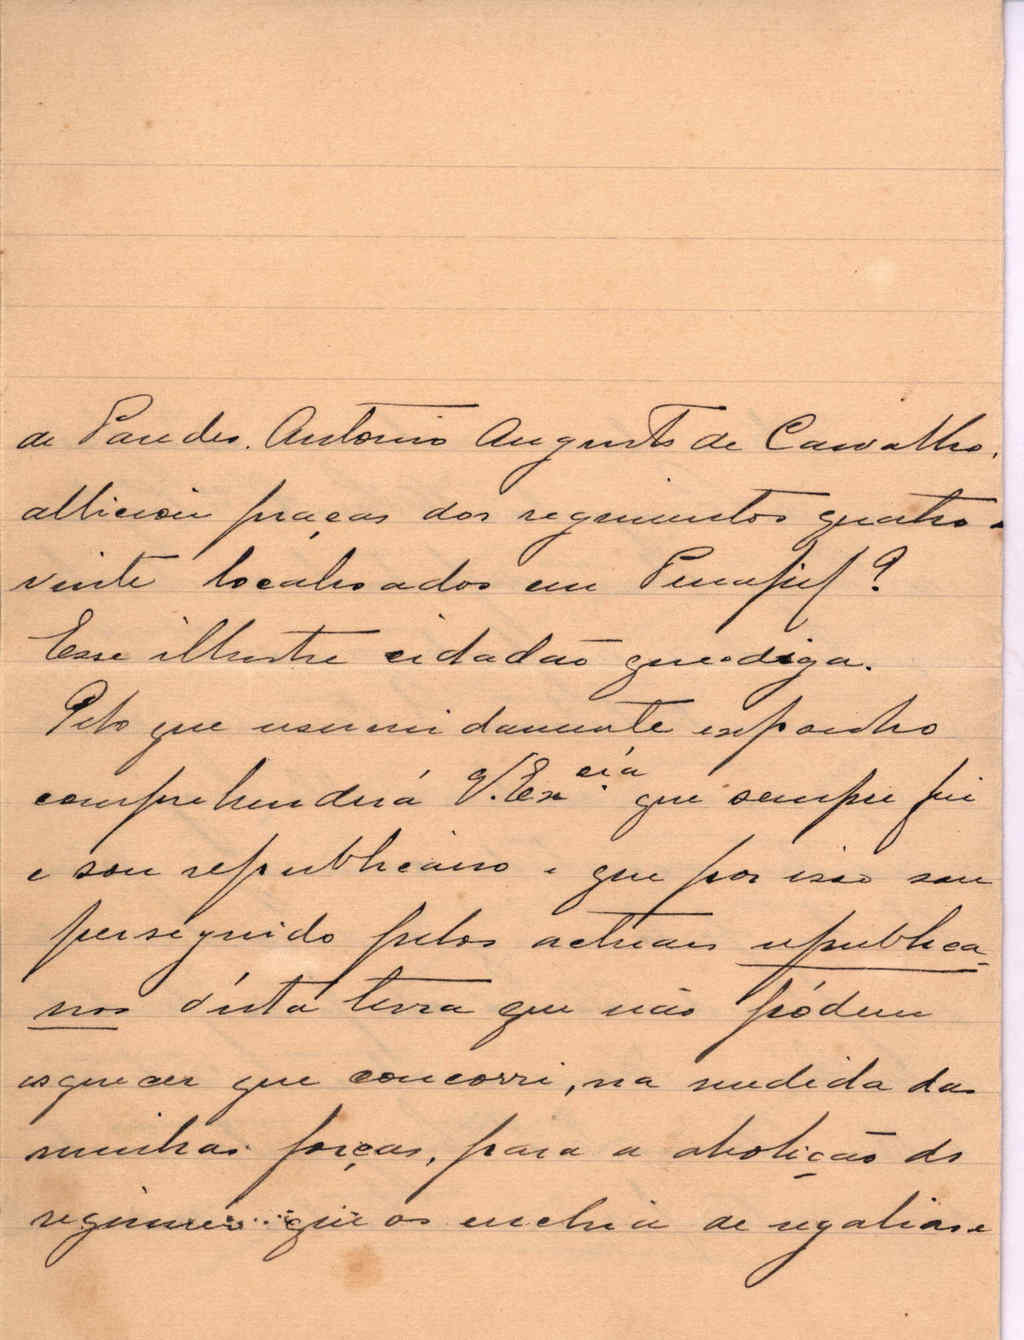 de Paredes. Antonio Augusto de Carvalho,
alliciou praças dos regimentos quatro e
vinte localisados em Penafiel?
Esse illustre cidadão que o diga.
Pelo que resumidamente exponho
comprehenderá V. Ex.cia que sempre fui
e sou republicano e que por isso sou
perseguido pelos actuaes republica-
nos d'esta terra que não pódem
esquecer que concorri, na medida das
minhas forças, para a abolição do
regimen que os enchia de regalias e